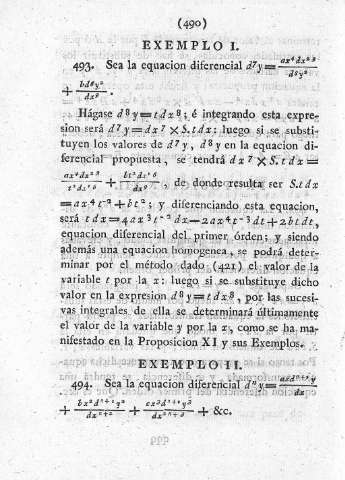 (490)
EXEMPLO I.
493. Sea la equacion diferencial d⁷y = ax⁴dx²³/d⁸y²
+ bd⁸y²/dx⁹.
Hágase d⁸y = tdx⁸; é integrando esta expre-
sion será d⁷y = dx⁷ × S.tdx: luego si se substi-
tuyen los valores de d⁷y, d⁸y en la equacion di-
ferencial propuesta, se tendrá dx⁷ × S.tdx =
ax⁴dx²³/t²dx¹⁶ + bt²dx¹⁶/dx⁹, de donde resulta ser S.tdx
= ax⁴t⁻² + bt²; y diferenciando esta equacion,
será tdx = 4ax³t⁻²dx − 2ax⁴t⁻³dt + 2btdt,
equacion diferencial del primer órden; y siendo
además una equacion homogenea, se podrá deter-
minar por el método dado (421) el valor de la
variable t por la x: luego si se substituye dicho
valor en la expresion d⁸y = tdx⁸, por las sucesi-
vas integrales de ella se determinará últimamente
el valor de la variable y por la x, como se ha ma-
nifestado en la Proposicion XI y sus Exemplos.
EXEMPLO II.
494. Sea la equacion diferencial dⁿy = axdⁿ⁺¹y/dx
+ bx²dⁿ⁺¹y²/dxⁿ⁺² + cx³dⁿ⁺¹y³/dx²ⁿ⁺³ + &c.